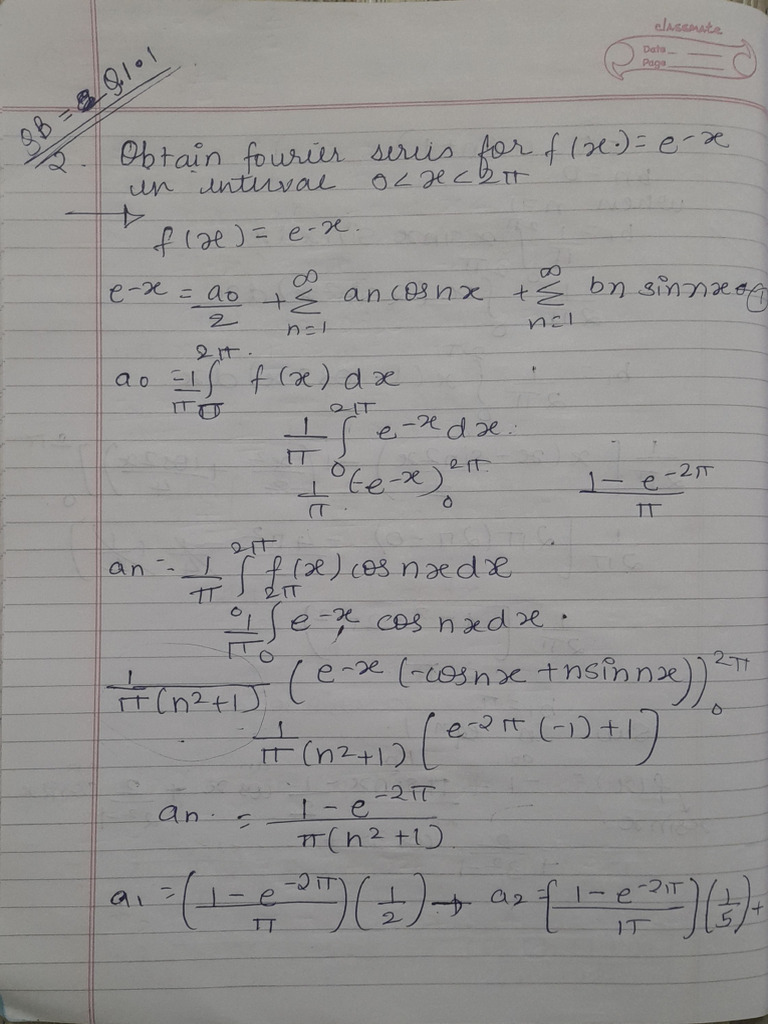 classmate
Date
Page
SB = 9.1.1
2. Obtain fourier series for f(x) = e-x
in interval 0<x<2π
f(x) = e-x.
e-x = a0/2 + ∞∑n=1 an cosnx + ∞∑n=1 bn sinnx ①
a0 = 1/π ∫0^2π f(x) dx
1/π ∫0^2π e-x dx.
1/π (-e-x)0^2π 1-e-2π/π
an = 1/π ∫0^2π f(x) cos nx dx
1/π ∫0^2π e-x cos nx dx.
1/π(n²+1) (e-x (-cosnx + nsinnx))0^2π
1/π(n²+1) (e-2π (-1)+1)
an. = 1-e-2π/π(n²+1)
a1 = (1-e-2π/π)(1/2) → a2 = (1-e-2π/π)(1/5)+